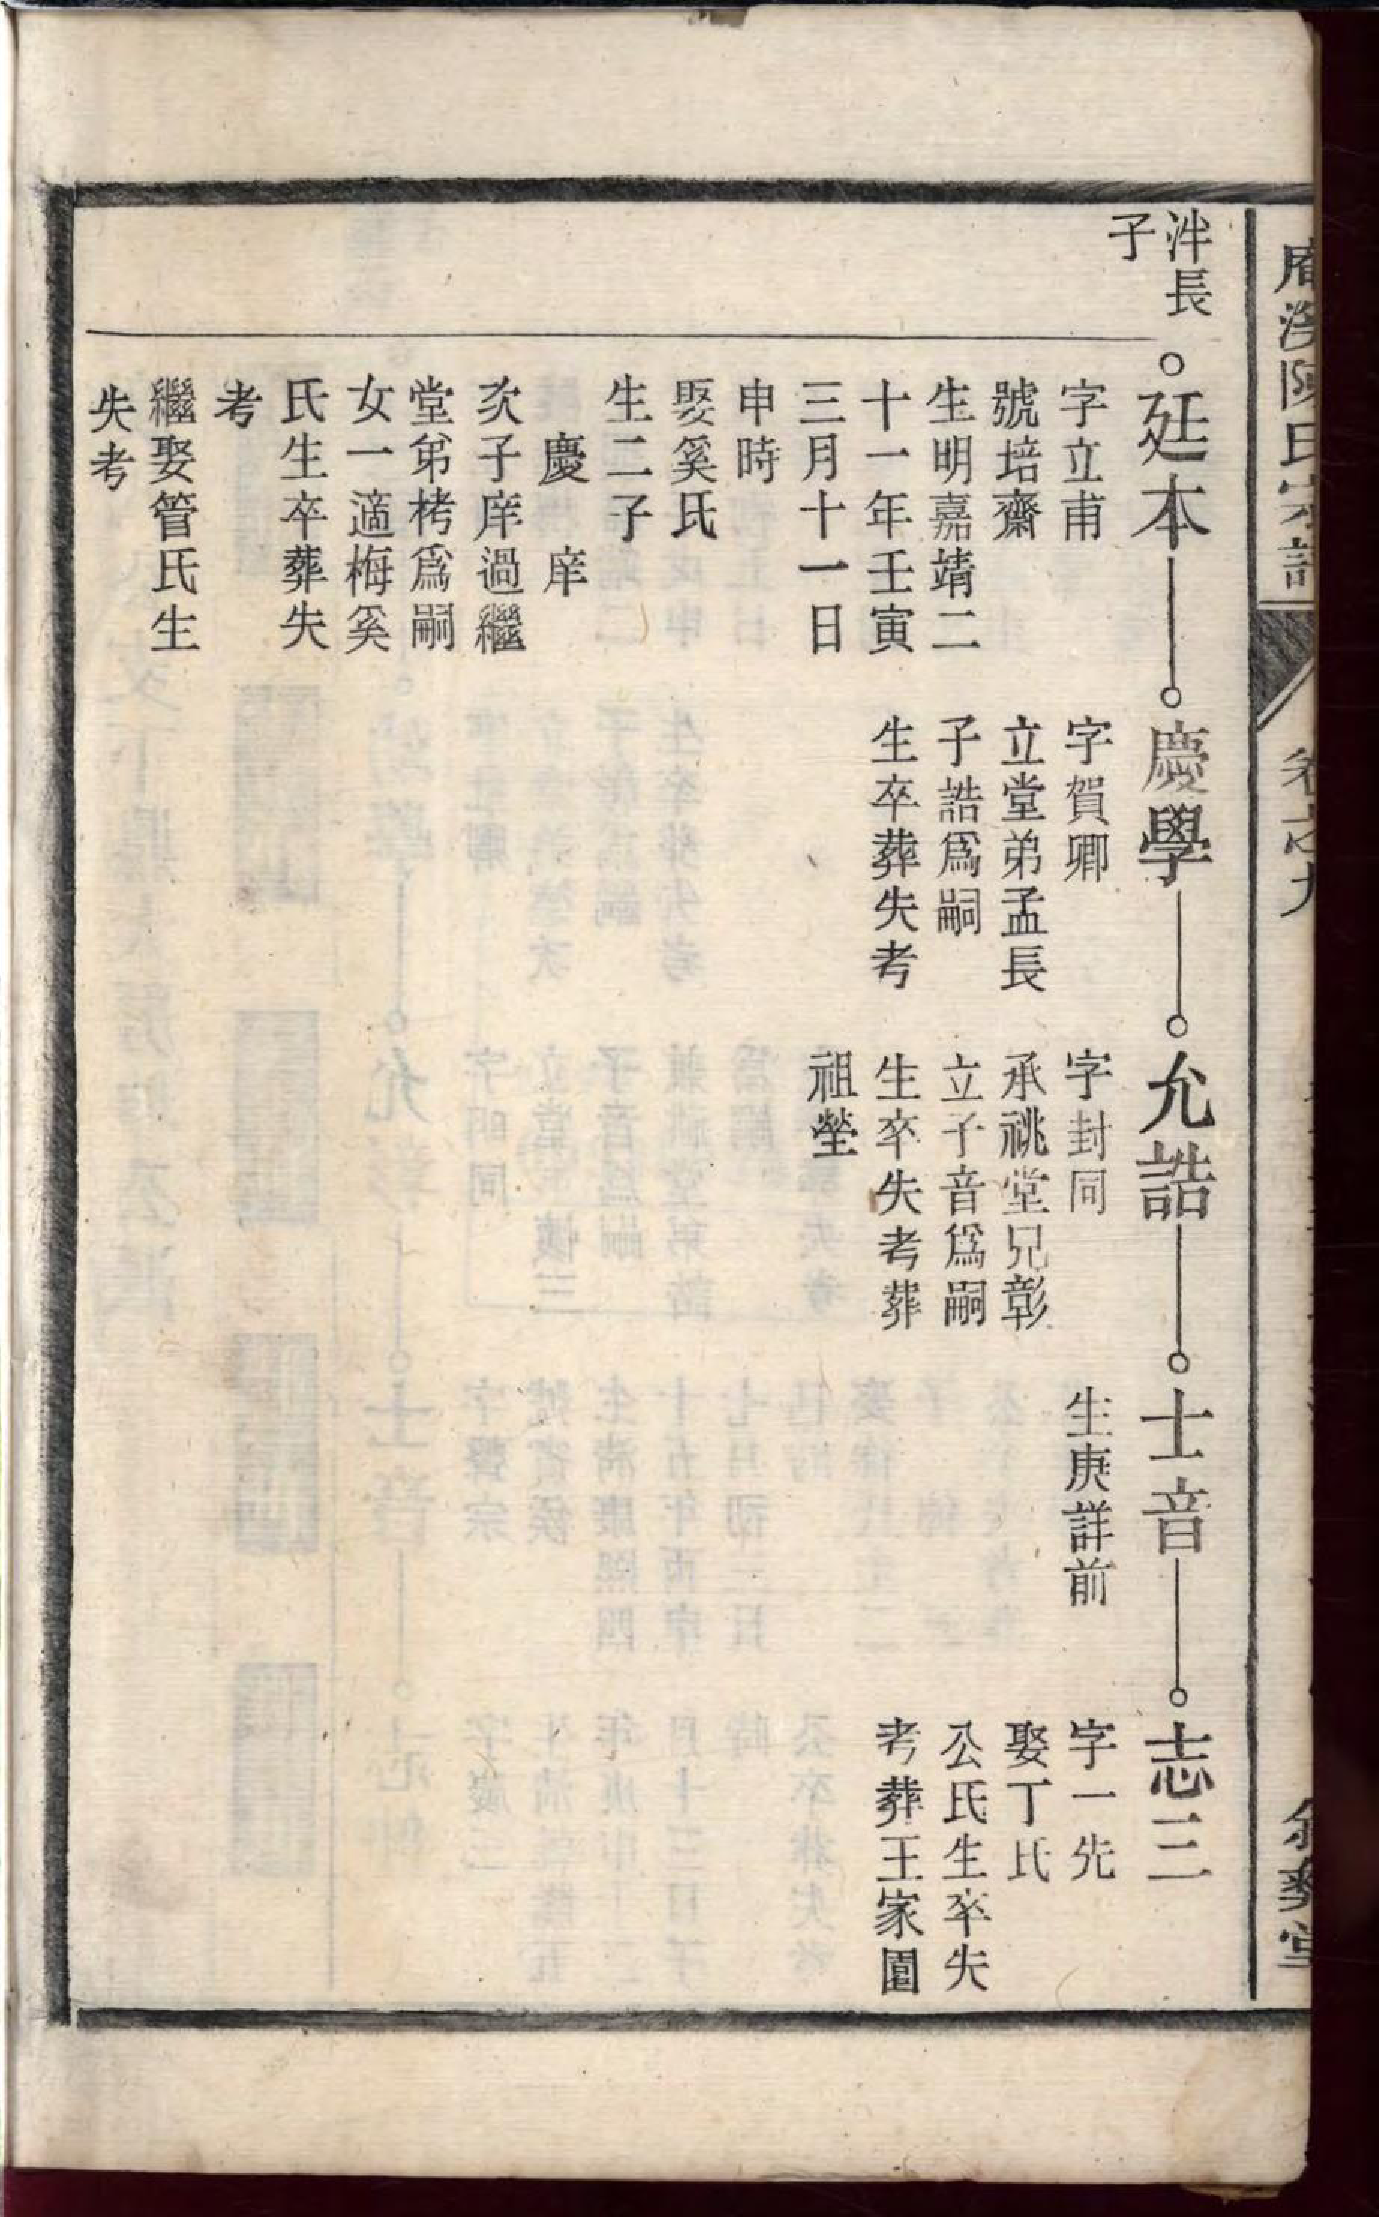 陳氏宗譜
卷之九
泮長
子
延本
字立甫
號培齋
生明嘉靖二
十一年壬寅
三月十一日
申時
娶奚氏
生二子
慶 庠
次子庠過繼
堂弟栲爲嗣
女一適梅奚
氏生卒葬失
考
繼娶管氏生
失考
慶學
字賀卿
立堂弟孟長
子誥爲嗣
生卒葬失考
允誥
字封同
承祧堂兄彰
立子音爲嗣
生卒失考葬
祖塋
士音
生庚詳前
志三
字一先
娶丁氏
公氏生卒失
考葬王家園